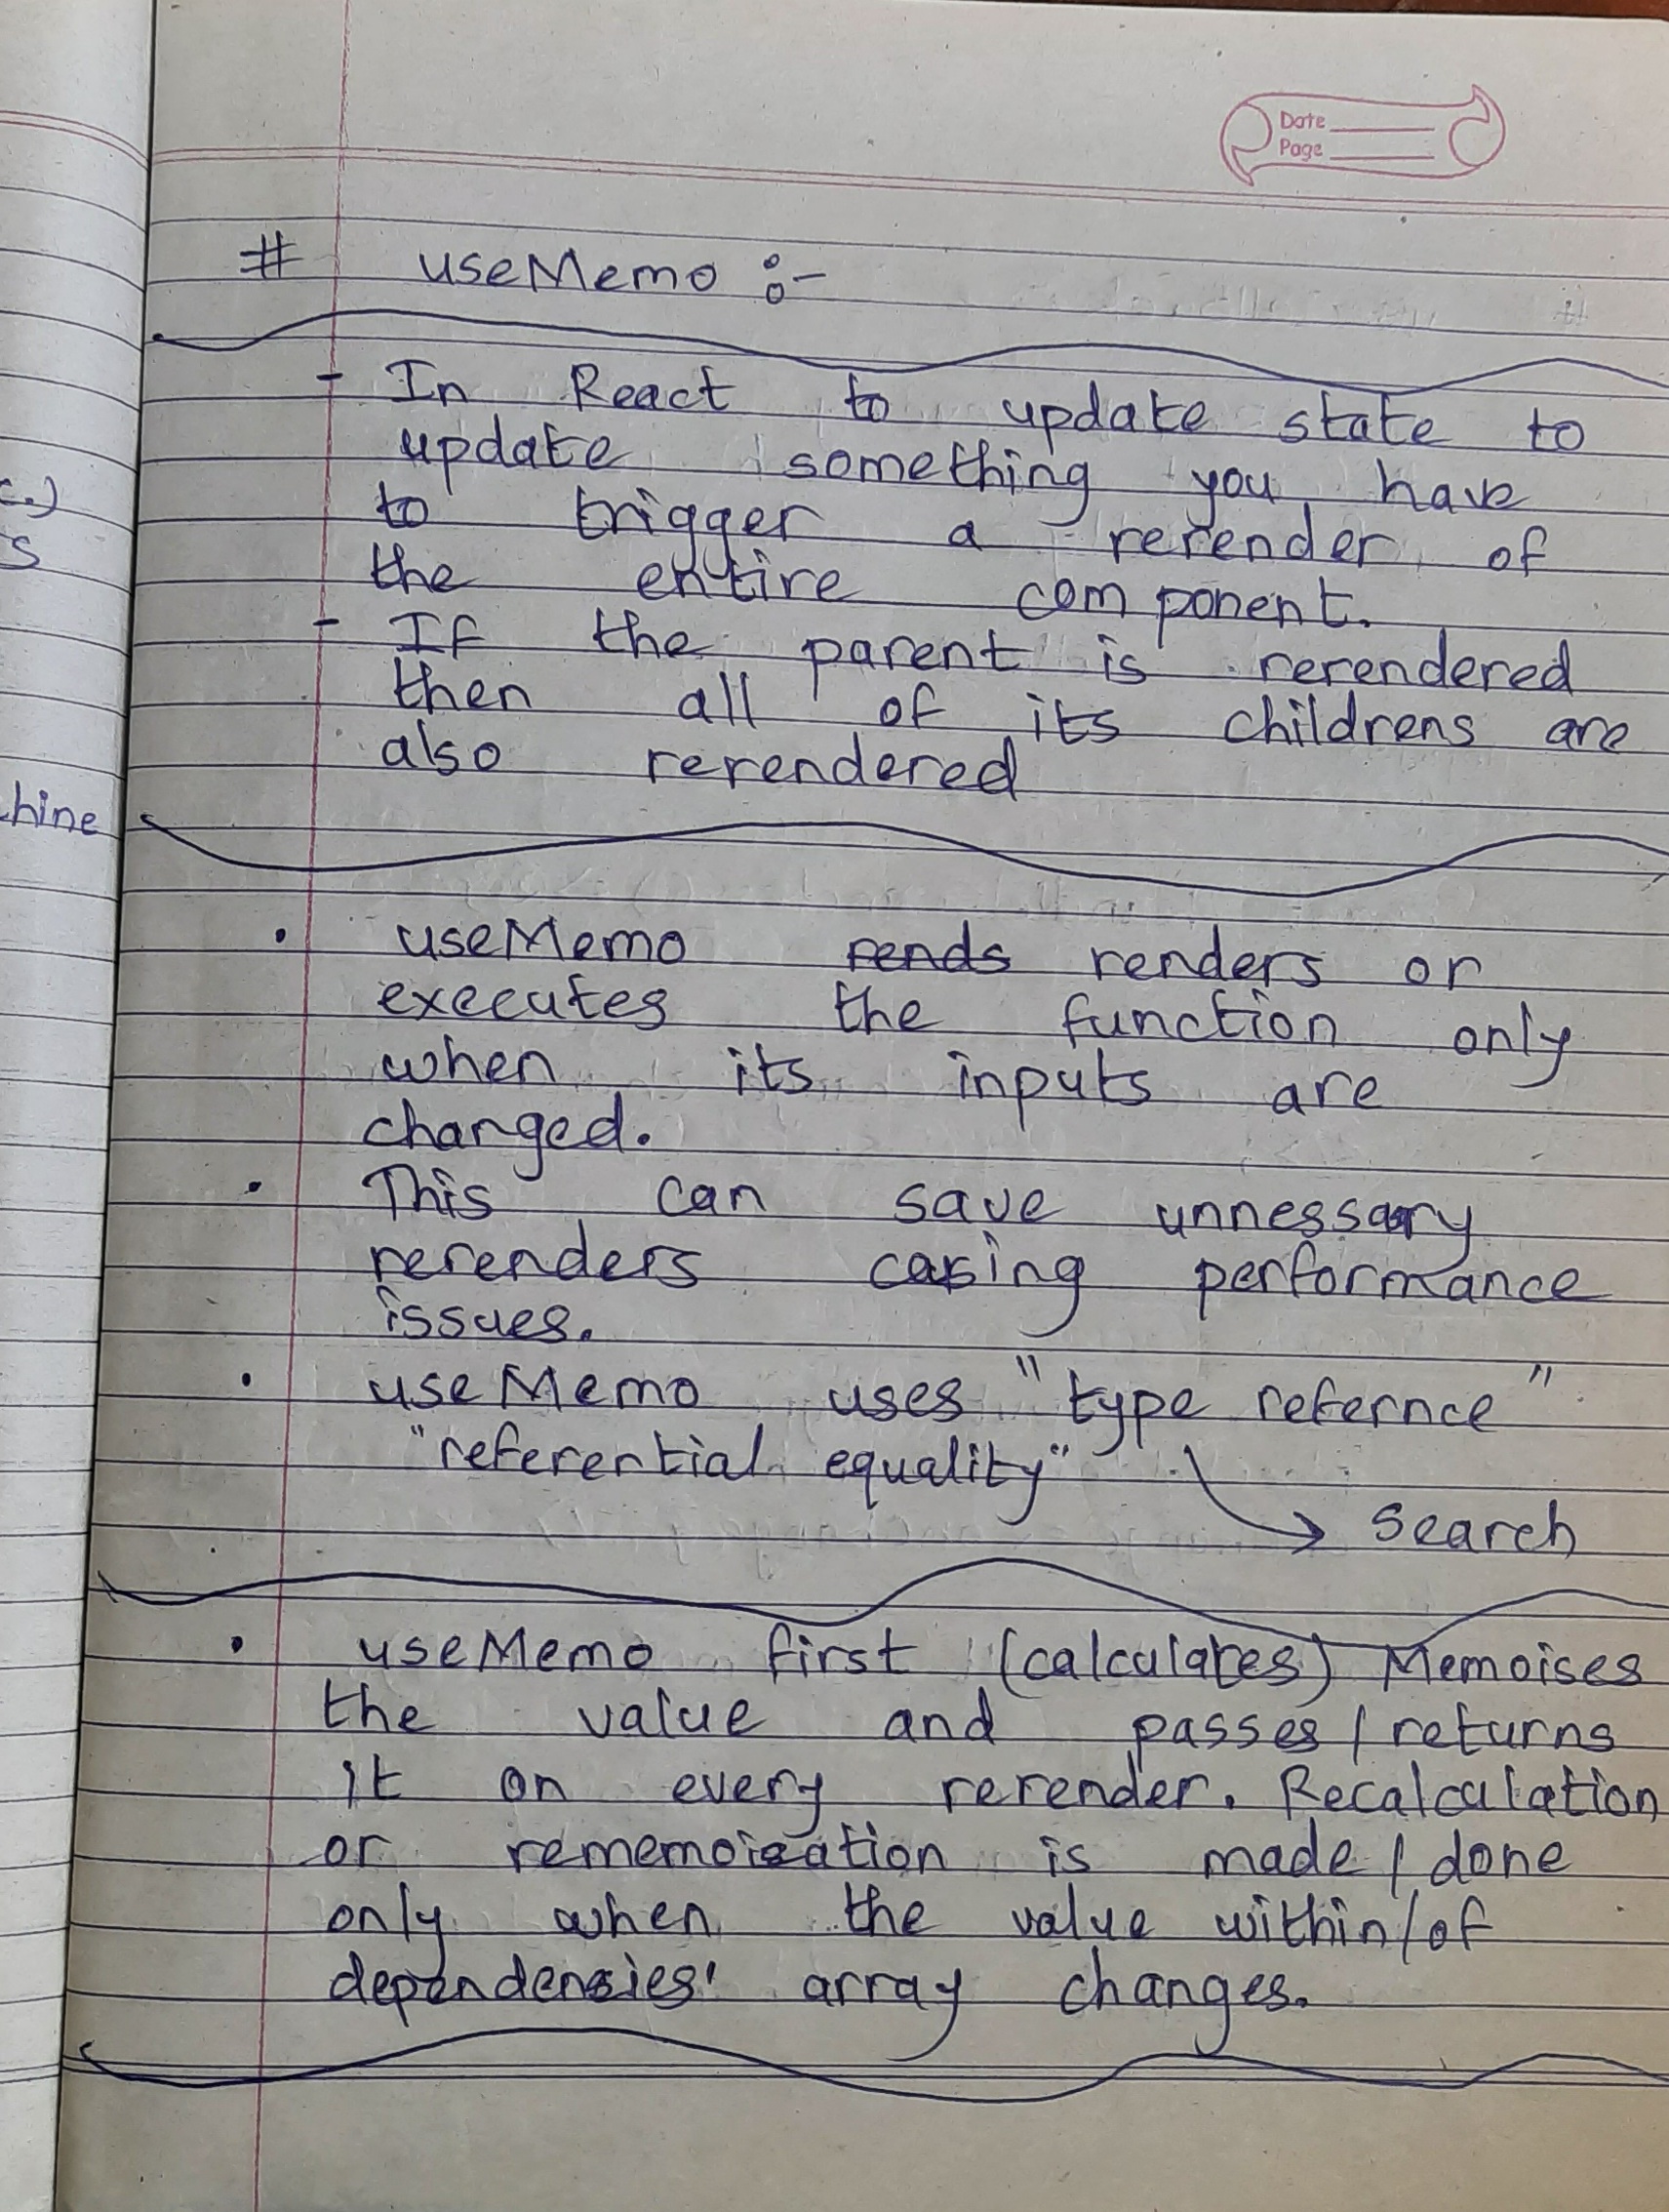 Date
Page
# useMemo :-
- In React to update state to
update something you have
to trigger a rerender of
the entire component.
- If the parent is rerendered
then all of its childrens are
also rerendered
c.)
s
hine
• useMemo rends renders or
executes the function only
when its inputs are
changed.
• This can save unnessary
rerenders casing performance
issues.
• useMemo uses "type refernce"
"referential equality"
→ Search
• useMemo first (calculates) Memoises
the value and passes/returns
it on every rerender. Recalculation
or rememoization is made/done
only when the value within/of
dependensies' array changes.